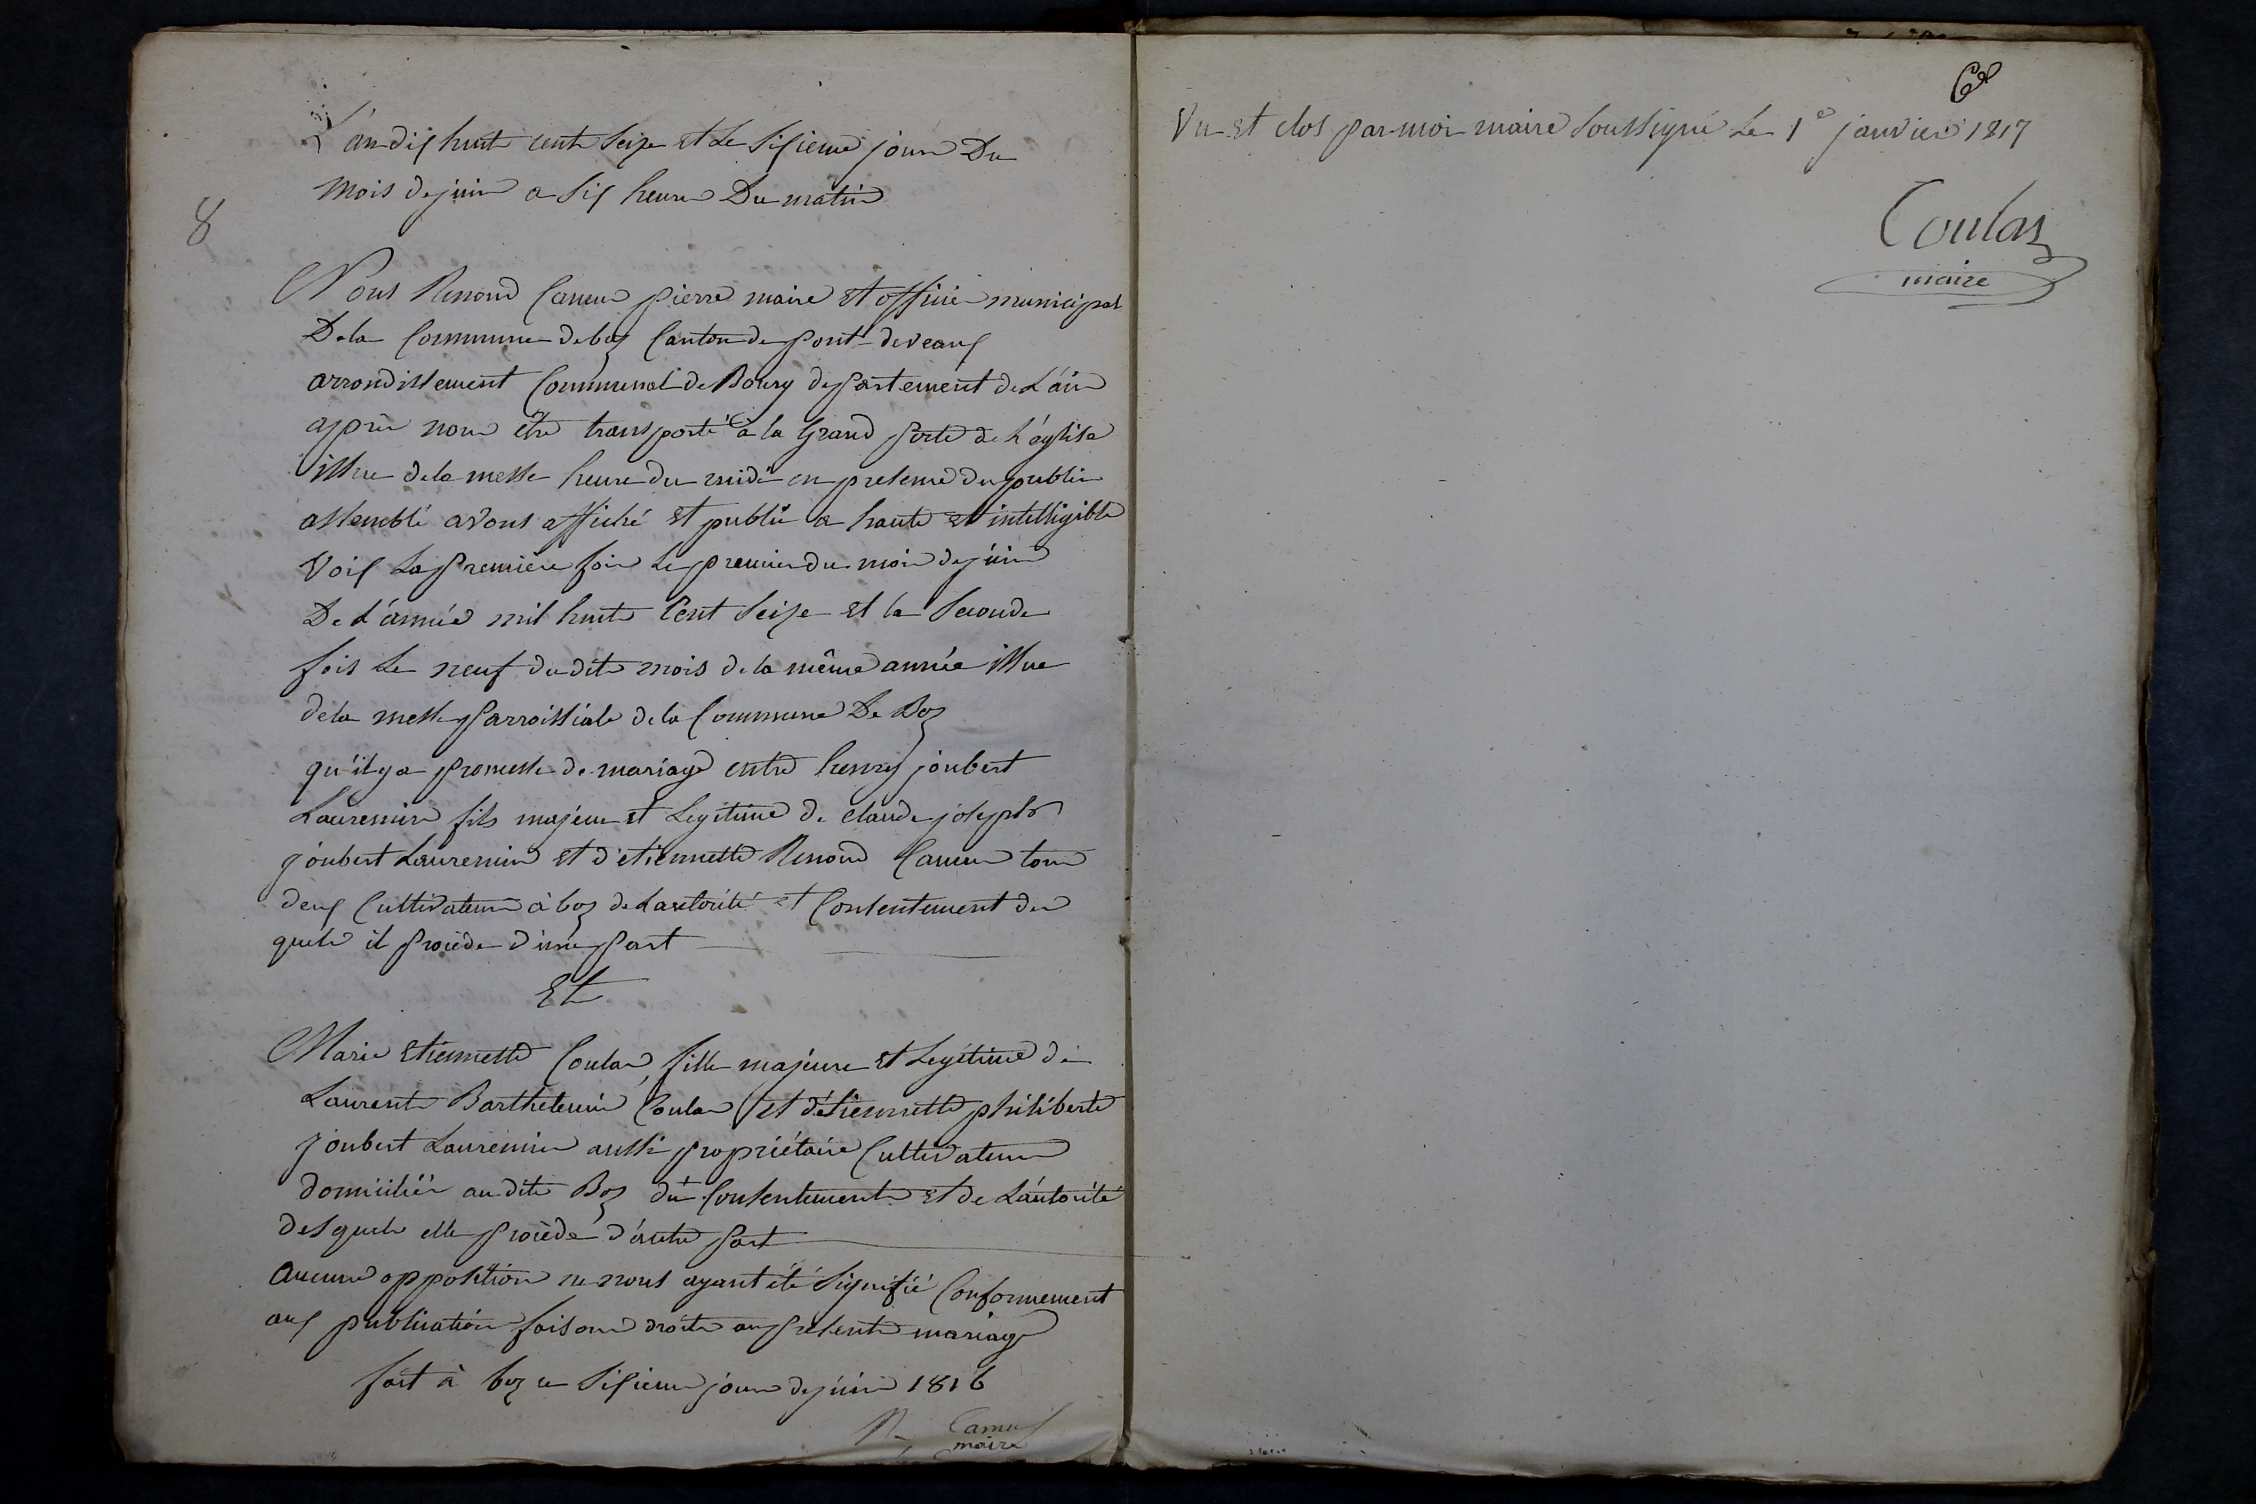 L'an dix huit cent seize et le sixieme jour Du
Mois de juin a six heure Du matin
8
Nous Renoud Camus pierre maire et officier municipal
De la Commune de boz Canton de pont-deveaux
arrondissement Communal de Bourg departement de L'ain
après nous être transporté à la Grand porte de L'aglise
issue de la messe heure du midi en presence du public
assemblé avons affiché et publié a haute et intelligible
Voix La premiere fois Le premier du mois de juin
De L'année mil huit Cent Seize et la Seconde
fois Le neuf du dit mois de la même année issue
de la messe parroissiale de la Commune De Boz
qu'il y a promesse de mariage entre henry joubert
Laurencin fils majeur et Legitime de claude joseph
joubert Laurencin et d'etiennette Renoud Camus tous
deux Cultivateurs à boz de Lautorité et Consentement des
quels il procède d'une part
Et
Marie etiennette Coulas, fille majeure et Legitime de
Laurent Barthelemi Coulas et d'étiennette philiberte
joubert Laurencin aussi propriétaire Cultivateurs
domiciliés au dit Boz du Consentement et de L'autorité
desquels elle procède d'autre part
aucune opposition ne nous ayant été signifié Conformement
aux publication faisons droite au present mariage
fait à boz ce sixieme jour de juin 1816
R. Camus
maire
Vu et clos par moi maire soussigné Le 1e janvier 1817
Coulas
maire